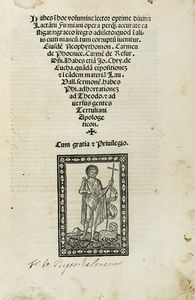 Habes hoc volumine lector optime divina
Lactātii Firmiani opera perq̄ accurate ca
stigata: graeco ītegro adiūcto quod ī ali
is cum mancū, tum corruptū
Eiusdē Nephythomon. Carmen
de Phoenice. Carmē de Resur.
Dñi. Habes etiā Jo. Chry. de
Eucha. quādā expositionē,
⁊ ī eādem materiā Lau.
Vall. sermonē. habes
Phi. adhortationē
ad Theodo. ⁊ ad
versus gentes
Tertuliani
Apologe
ticon.
Cum gratia ⁊ Privilegio.